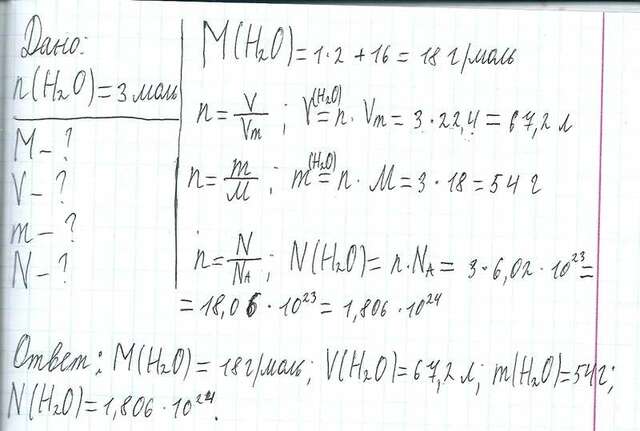 Дано:
n(H₂O) = 3 моль
M – ?
V – ?
m – ?
N – ?
M(H₂O) = 1·2 + 16 = 18 г/моль
n = V/Vm ; V(H₂O) = n · Vm = 3 · 22,4 = 67,2 л
n = m/M ; m(H₂O) = n · M = 3 · 18 = 54 г
n = N/NA ; N(H₂O) = n·NA = 3·6,02·10²³ =
= 18,06 · 10²³ = 1,806 · 10²⁴
Ответ: M(H₂O) = 18 г/моль; V(H₂O) = 67,2 л; m(H₂O) = 54 г;
N(H₂O) = 1,806 · 10²⁴.